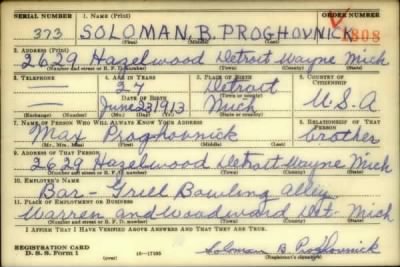 SERIAL NUMBER 1. NAME (Print) ORDER NUMBER
373 SOLOMAN. B. PROGHOVNICK 1808
(First) (Middle) (Last)
2. ADDRESS (Print)
2629 Hazelwood Detroit Wayne Mich
(Number and street or R. F. D. number) (Town) (County) (State)
3. TELEPHONE 4. AGE IN YEARS 5. PLACE OF BIRTH 6. COUNTRY OF CITIZENSHIP
27 Detroit
DATE OF BIRTH (Town or county)
June 23 1913 Mich U.S.A
(Exchange) (Number) (Mo.) (Day) (Yr.) (State or country)
7. NAME OF PERSON WHO WILL ALWAYS KNOW YOUR ADDRESS 8. RELATIONSHIP OF THAT PERSON
Max Proghovnick brother
(Mr., Mrs., Miss) (First) (Middle) (Last)
9. ADDRESS OF THAT PERSON
2629 Hazelwood Detroit Wayne Mich
(Number and street or R. F. D. number) (Town) (County) (State)
10. EMPLOYER'S NAME
Bar-Grill Bowling Alley
11. PLACE OF EMPLOYMENT OR BUSINESS
Warren and Woodward Det. Mich
(Number and street or R. F. D. number) (Town) (County) (State)
I AFFIRM THAT I HAVE VERIFIED ABOVE ANSWERS AND THAT THEY ARE TRUE.
REGISTRATION CARD
D. S. S. Form 1 16—17105 Soloman B. Proghovnick
(Registrant's signature)